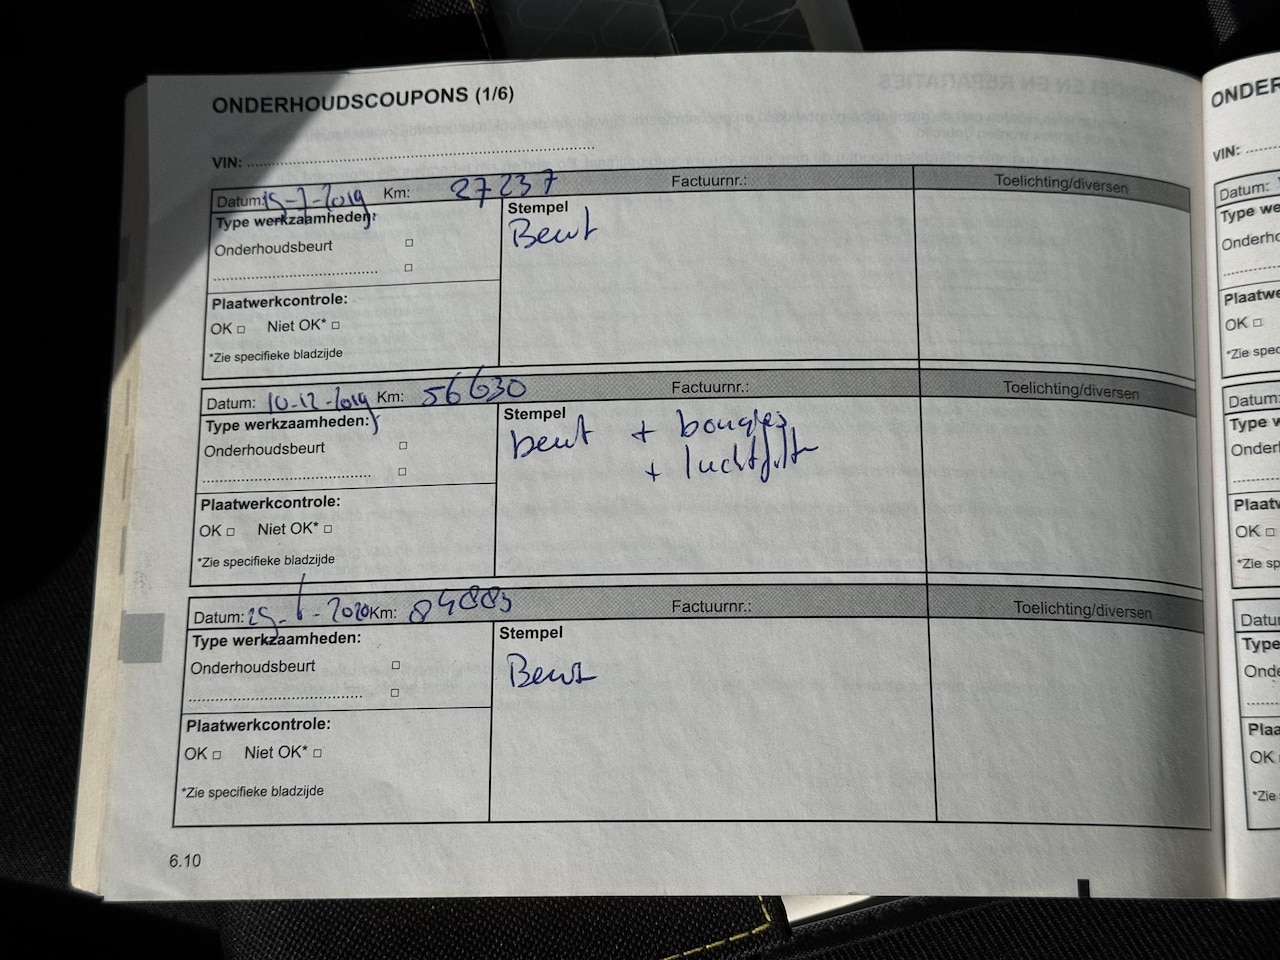 ONDERHOUDSCOUPONS (1/6)
VIN:
Datum: 15-7-2019 Km: 27237 Factuurnr.: Toelichting/diversen
Type werkzaamheden:
Stempel
Beurt
Onderhoudsbeurt
Plaatwerkcontrole:
OK Niet OK*
*Zie specifieke bladzijde
Datum: 10-12-2019 Km: 56630 Factuurnr.: Toelichting/diversen
Type werkzaamheden:
Stempel
beurt + bougies
+ luchtfilter
Onderhoudsbeurt
Plaatwerkcontrole:
OK Niet OK*
*Zie specifieke bladzijde
Datum: 25-6-2020 Km: 84883 Factuurnr.: Toelichting/diversen
Type werkzaamheden:
Stempel
Beurt
Onderhoudsbeurt
Plaatwerkcontrole:
OK Niet OK*
*Zie specifieke bladzijde
6.10
ONDER
VIN:
Datum:
Type we
Onderho
Plaatwe
OK
*Zie spec
Datum:
Type w
Onder
Plaatv
OK
*Zie sp
Datu
Type
Onde
Plaa
OK
*Zie